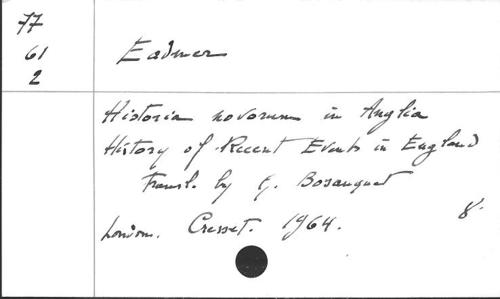 77
61
2
Eadmer
Historia novorum in Anglia
History of Recent Events in England
Transl. by G. Bosanquet
London. Cresset. 1964.
8°